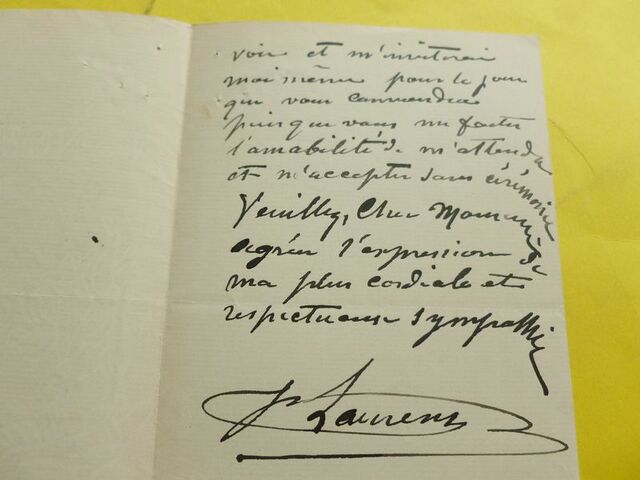 voir et m'inviterai
moi même pour le jour
qui vous conviendra
puisque vous me faites
l'amabilité de m'attendre
et m'accepter sans cérémonie
Veuillez, Cher Monsieur
agréer l'expression de
ma plus cordiale et
respectueuse sympathie
Laurens